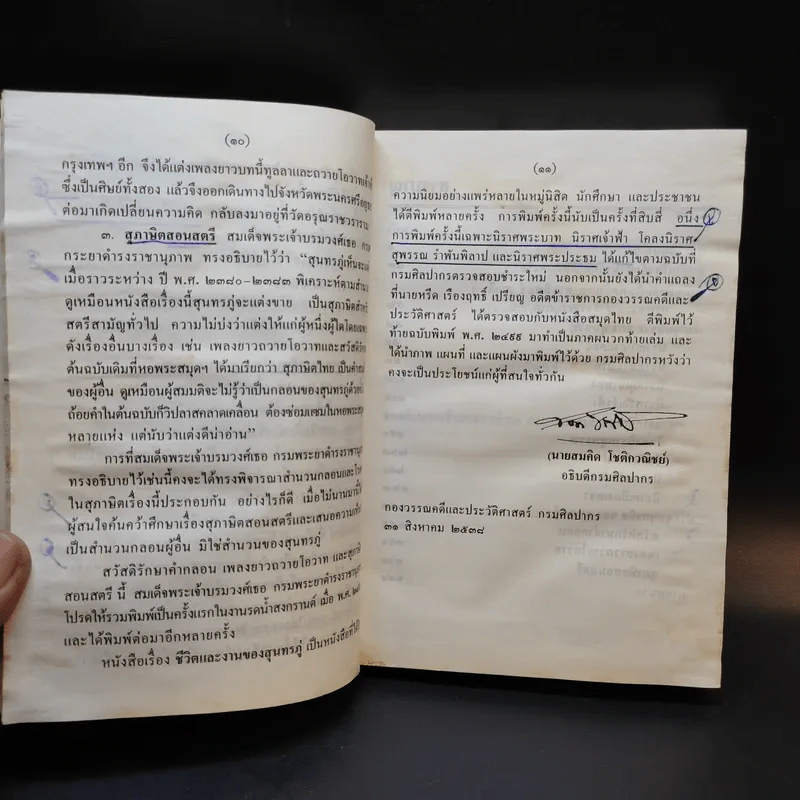 (๑๐)
กรุงเทพฯ อีก จึงได้แต่งเพลงยาวบทนี้ทูลลาและถวายโอวาทเจ้าฟ้า
ซึ่งเป็นศิษย์ทั้งสอง แล้วจึงออกเดินทางไปจังหวัดพระนครศรีอยุธ
ต่อมาเกิดเปลี่ยนความคิด กลับลงมาอยู่ที่วัดอรุณราชวราราม
๓. สุภาษิตสอนสตรี สมเด็จพระเจ้าบรมวงศ์เธอ กรม
กระยาดำรงราชานุภาพ ทรงอธิบายไว้ว่า "สุนทรภู่เห็นจะแต่ง
เมื่อราวระหว่าง ปี พ.ศ. ๒๓๘๐-๒๓๘๓ พิเคราะห์ตามสำนวน
ดูเหมือนหนังสือเรื่องนี้สุนทรภู่จะแต่งขาย เป็นสุภาษิตสำหรับ
สตรีสามัญทั่วไป ความไม่บ่งว่าแต่งให้แก่ผู้หนึ่งผู้ใดโดยเฉพาะ
ดังเรื่องอื่นบางเรื่อง เช่น เพลงยาวถวายโอวาทและสวัสดิรักษา
ต้นฉบับเดิมที่หอพระสมุดฯ ได้มาเรียกว่า สุภาษิตไทย เป็นคำสอน
ของผู้อื่น ดูเหมือนผู้สมมติจะไม่รู้ว่าเป็นกลอนของสุนทรภู่ด้วยซ้ำ
ถ้อยคำในต้นฉบับก็วิปลาสคลาดเคลื่อน ต้องซ่อมแซมในหอพระสมุด
หลายแห่ง แต่นับว่าแต่งดีน่าอ่าน"
การที่สมเด็จพระเจ้าบรมวงศ์เธอ กรมพระยาดำรงราชานุภาพ
ทรงอธิบายไว้เช่นนี้คงจะได้ทรงพิจารณาสำนวนกลอนและโว
ในสุภาษิตเรื่องนี้ประกอบกัน อย่างไรก็ดี เมื่อไม่นานมานี้
ผู้สนใจค้นคว้าศึกษาเรื่องสุภาษิตสอนสตรีและเสนอความเห็น
เป็นสำนวนกลอนผู้อื่น มิใช่สำนวนของสุนทรภู่
สวัสดิรักษาคำกลอน เพลงยาวถวายโอวาท และสุภาษิต
สอนสตรี นี้ สมเด็จพระเจ้าบรมวงศ์เธอ กรมพระยาดำรงราชานุ
โปรดให้รวมพิมพ์เป็นครั้งแรกในงานรดน้ำสงกรานต์ เมื่อ พ.ศ.
และได้พิมพ์ต่อมาอีกหลายครั้ง
หนังสือเรื่อง ชีวิตและงานของสุนทรภู่ เป็นหนังสือที่ได้
(๑๑)
ความนิยมอย่างแพร่หลายในหมู่นิสิต นักศึกษา และประชาชน
ได้ตีพิมพ์หลายครั้ง การพิมพ์ครั้งนี้นับเป็นครั้งที่สิบสี่ อนึ่ง
การพิมพ์ครั้งนี้เฉพาะนิราศพระบาท นิราศเจ้าฟ้า โคลงนิราศ
สุพรรณ รำพันพิลาป และนิราศพระประธม ได้แก้ไขตามฉบับที่
กรมศิลปากรตรวจสอบชำระใหม่ นอกจากนั้นยังได้นำคำแถลง
ที่นายหรีด เรืองฤทธิ์ เปรียญ อดีตข้าราชการกองวรรณคดีและ
ประวัติศาสตร์ ได้ตรวจสอบกับหนังสือสมุดไทย ตีพิมพ์ไว้
ท้ายฉบับพิมพ์ พ.ศ. ๒๔๙๙ มาทำเป็นภาคผนวกท้ายเล่ม และ
ได้นำภาพ แผนที่ และแผนผังมาพิมพ์ไว้ด้วย กรมศิลปากรหวังว่า
คงจะเป็นประโยชน์แก่ผู้ที่สนใจทั่วกัน
(นายสมคิด โชติกวณิชย์)
อธิบดีกรมศิลปากร
กองวรรณคดีและประวัติศาสตร์ กรมศิลปากร
๓๑ สิงหาคม ๒๕๓๘